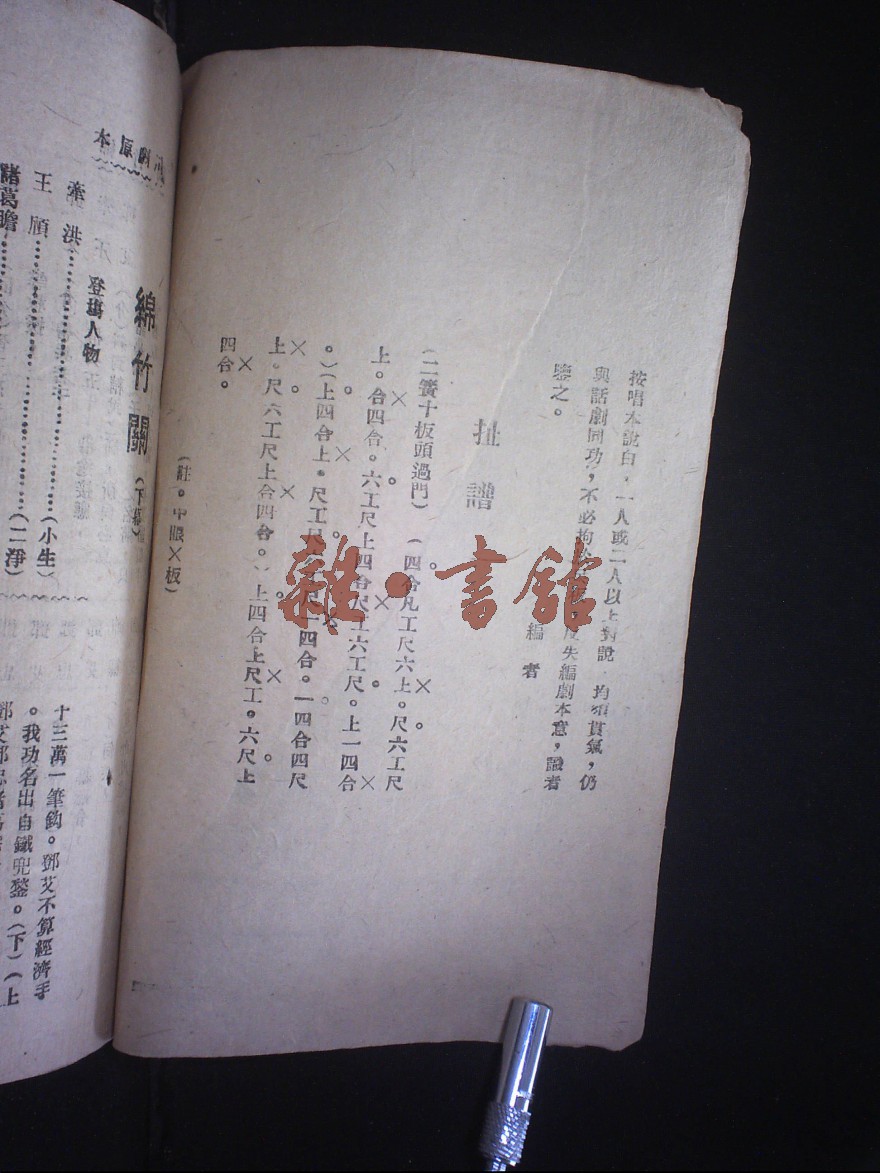 按唱本說白，一人或二人以上對說，均須貫氣，仍
與話劇同功，不必拘 失編劇本意，識者
鑒之。
編者
扯譜
(二簧十板頭過門)(四合凡工尺六上。尺六工尺
上。合四合。六工尺上四合尺工六工尺。上一四合
。)(上四合上。尺工尺 工尺 四合。一四合四尺
上。尺六工尺上合四合。)上四合上尺工。六尺上
四合。
(註。中眼×板)
雜·書館
原本
綿竹關(下
登場人物
洪
王頎(小生)
諸葛瞻(二淨)
十三萬一筆鈎。鄧艾不算經濟手
。我功名出自鐵兜鍪。(下)(上